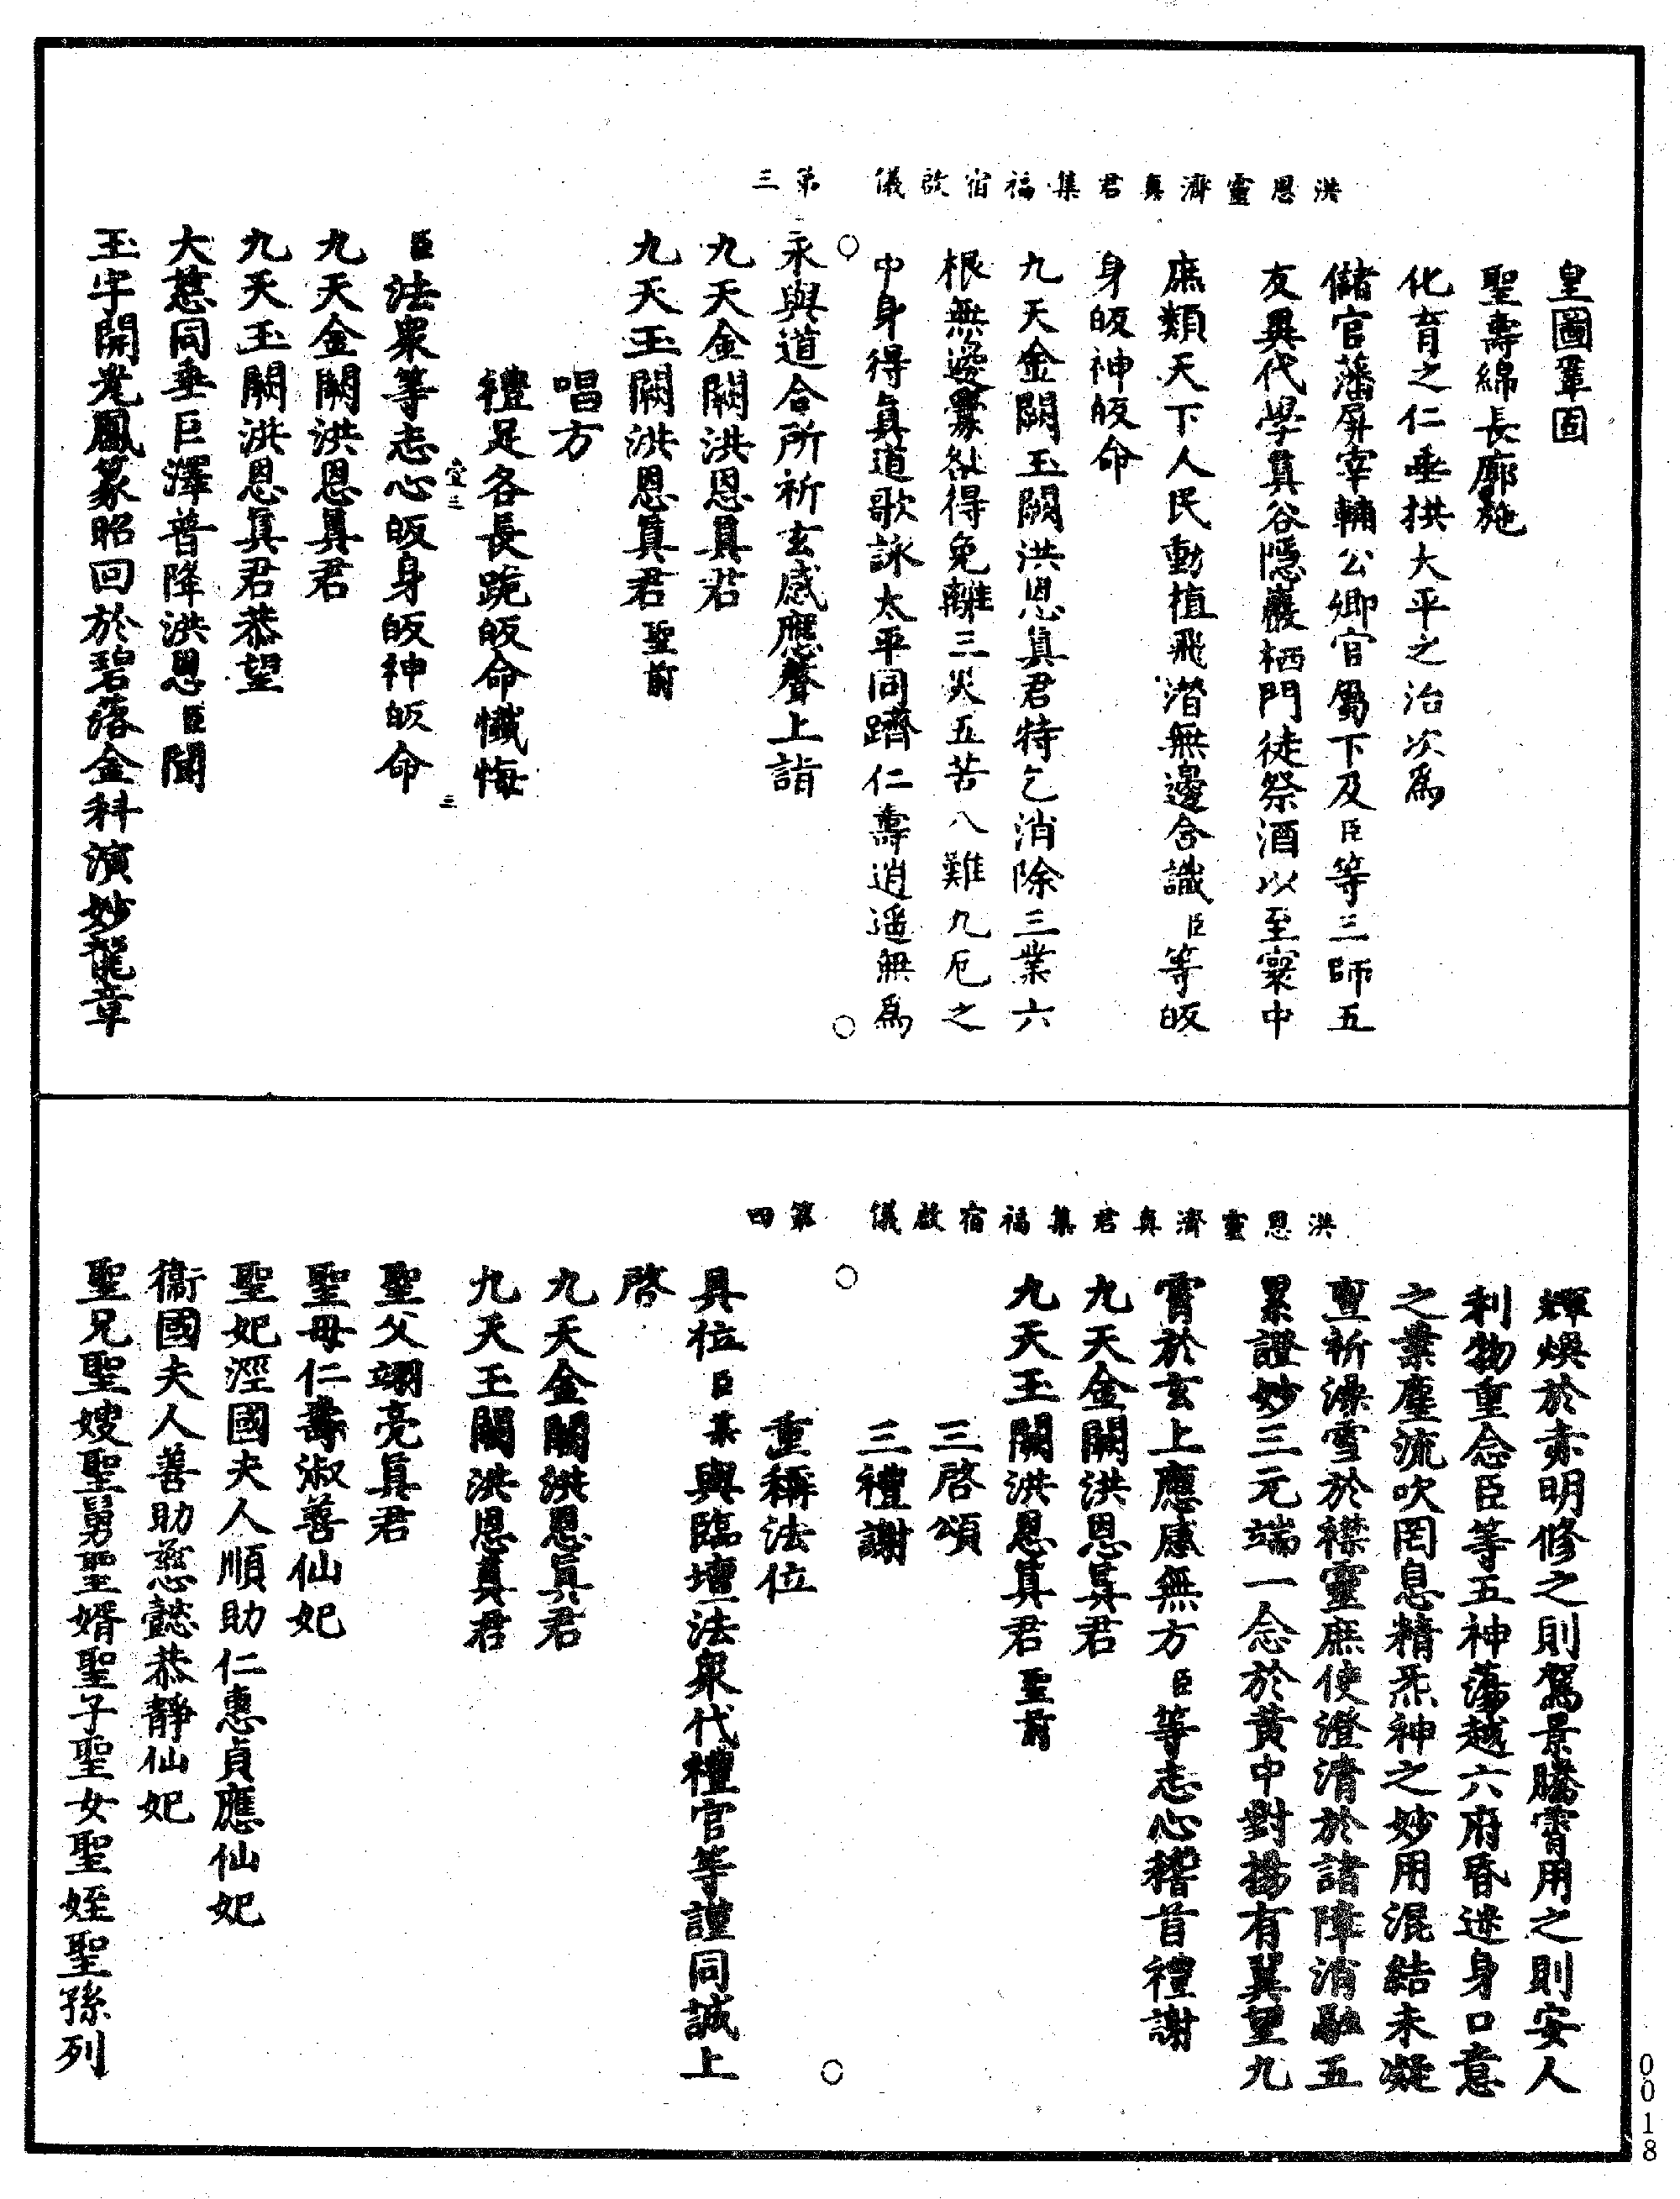 洪恩靈濟真君集福宿啟儀　第三
皇圖鞏固
聖壽綿長廓施
化育之仁垂拱大平之治次爲
儲官藩屏宰輔公卿官屬下及臣等三師五
友異代學真谷隱巖栖門徒祭酒以至寰中
庶類天下人民動植飛潛無邊含識臣等皈
身皈神皈命
九天金闕玉闕洪恩真君特乞消除三業六
根無邊釁咎得免離三災五苦八難九厄之
中身得真道歌詠太平同躋仁壽逍遥無爲
永與道合所祈玄感應聲上詣
九天金闕洪恩真君
九天玉闕洪恩真君聖前
唱方
禮足各長跪皈命懺悔
壹三　三
臣法衆等志心皈身皈神皈命
九天金闕洪恩真君
九天玉闕洪恩真君恭望
大慈同垂巨澤普降洪恩臣聞
玉字開光鳳篆昭回於碧落金科演妙龍章
洪恩靈濟真君集福宿啟儀　第四
輝煥於赤明修之則駕景騰霄用之則安人
利物重念臣等五神蕩越六府昏迷身口意
之業塵流吹罔息精炁神之妙用混結未凝
亶祈澡雪於襟靈庶使澄清於諸障消融五
累證妙三元端一念於黄中對揚有翼望九
霄於玄上應感無方臣等志心稽首禮謝
九天金闕洪恩真君
九天玉闕洪恩真君聖前
三啓頌
三禮謝
重稱法位
具位臣某與臨壇法衆代禮官等謹同誠上
啓
九天金闕洪恩真君
九天玉闕洪恩真君
聖父翊亮真君
聖母仁壽淑善仙妃
聖妃涇國夫人順助仁惠貞應仙妃
衛國夫人善助慈懿恭靜仙妃
聖兄聖嫂聖舅聖婿聖子聖女聖姪聖孫列
0018